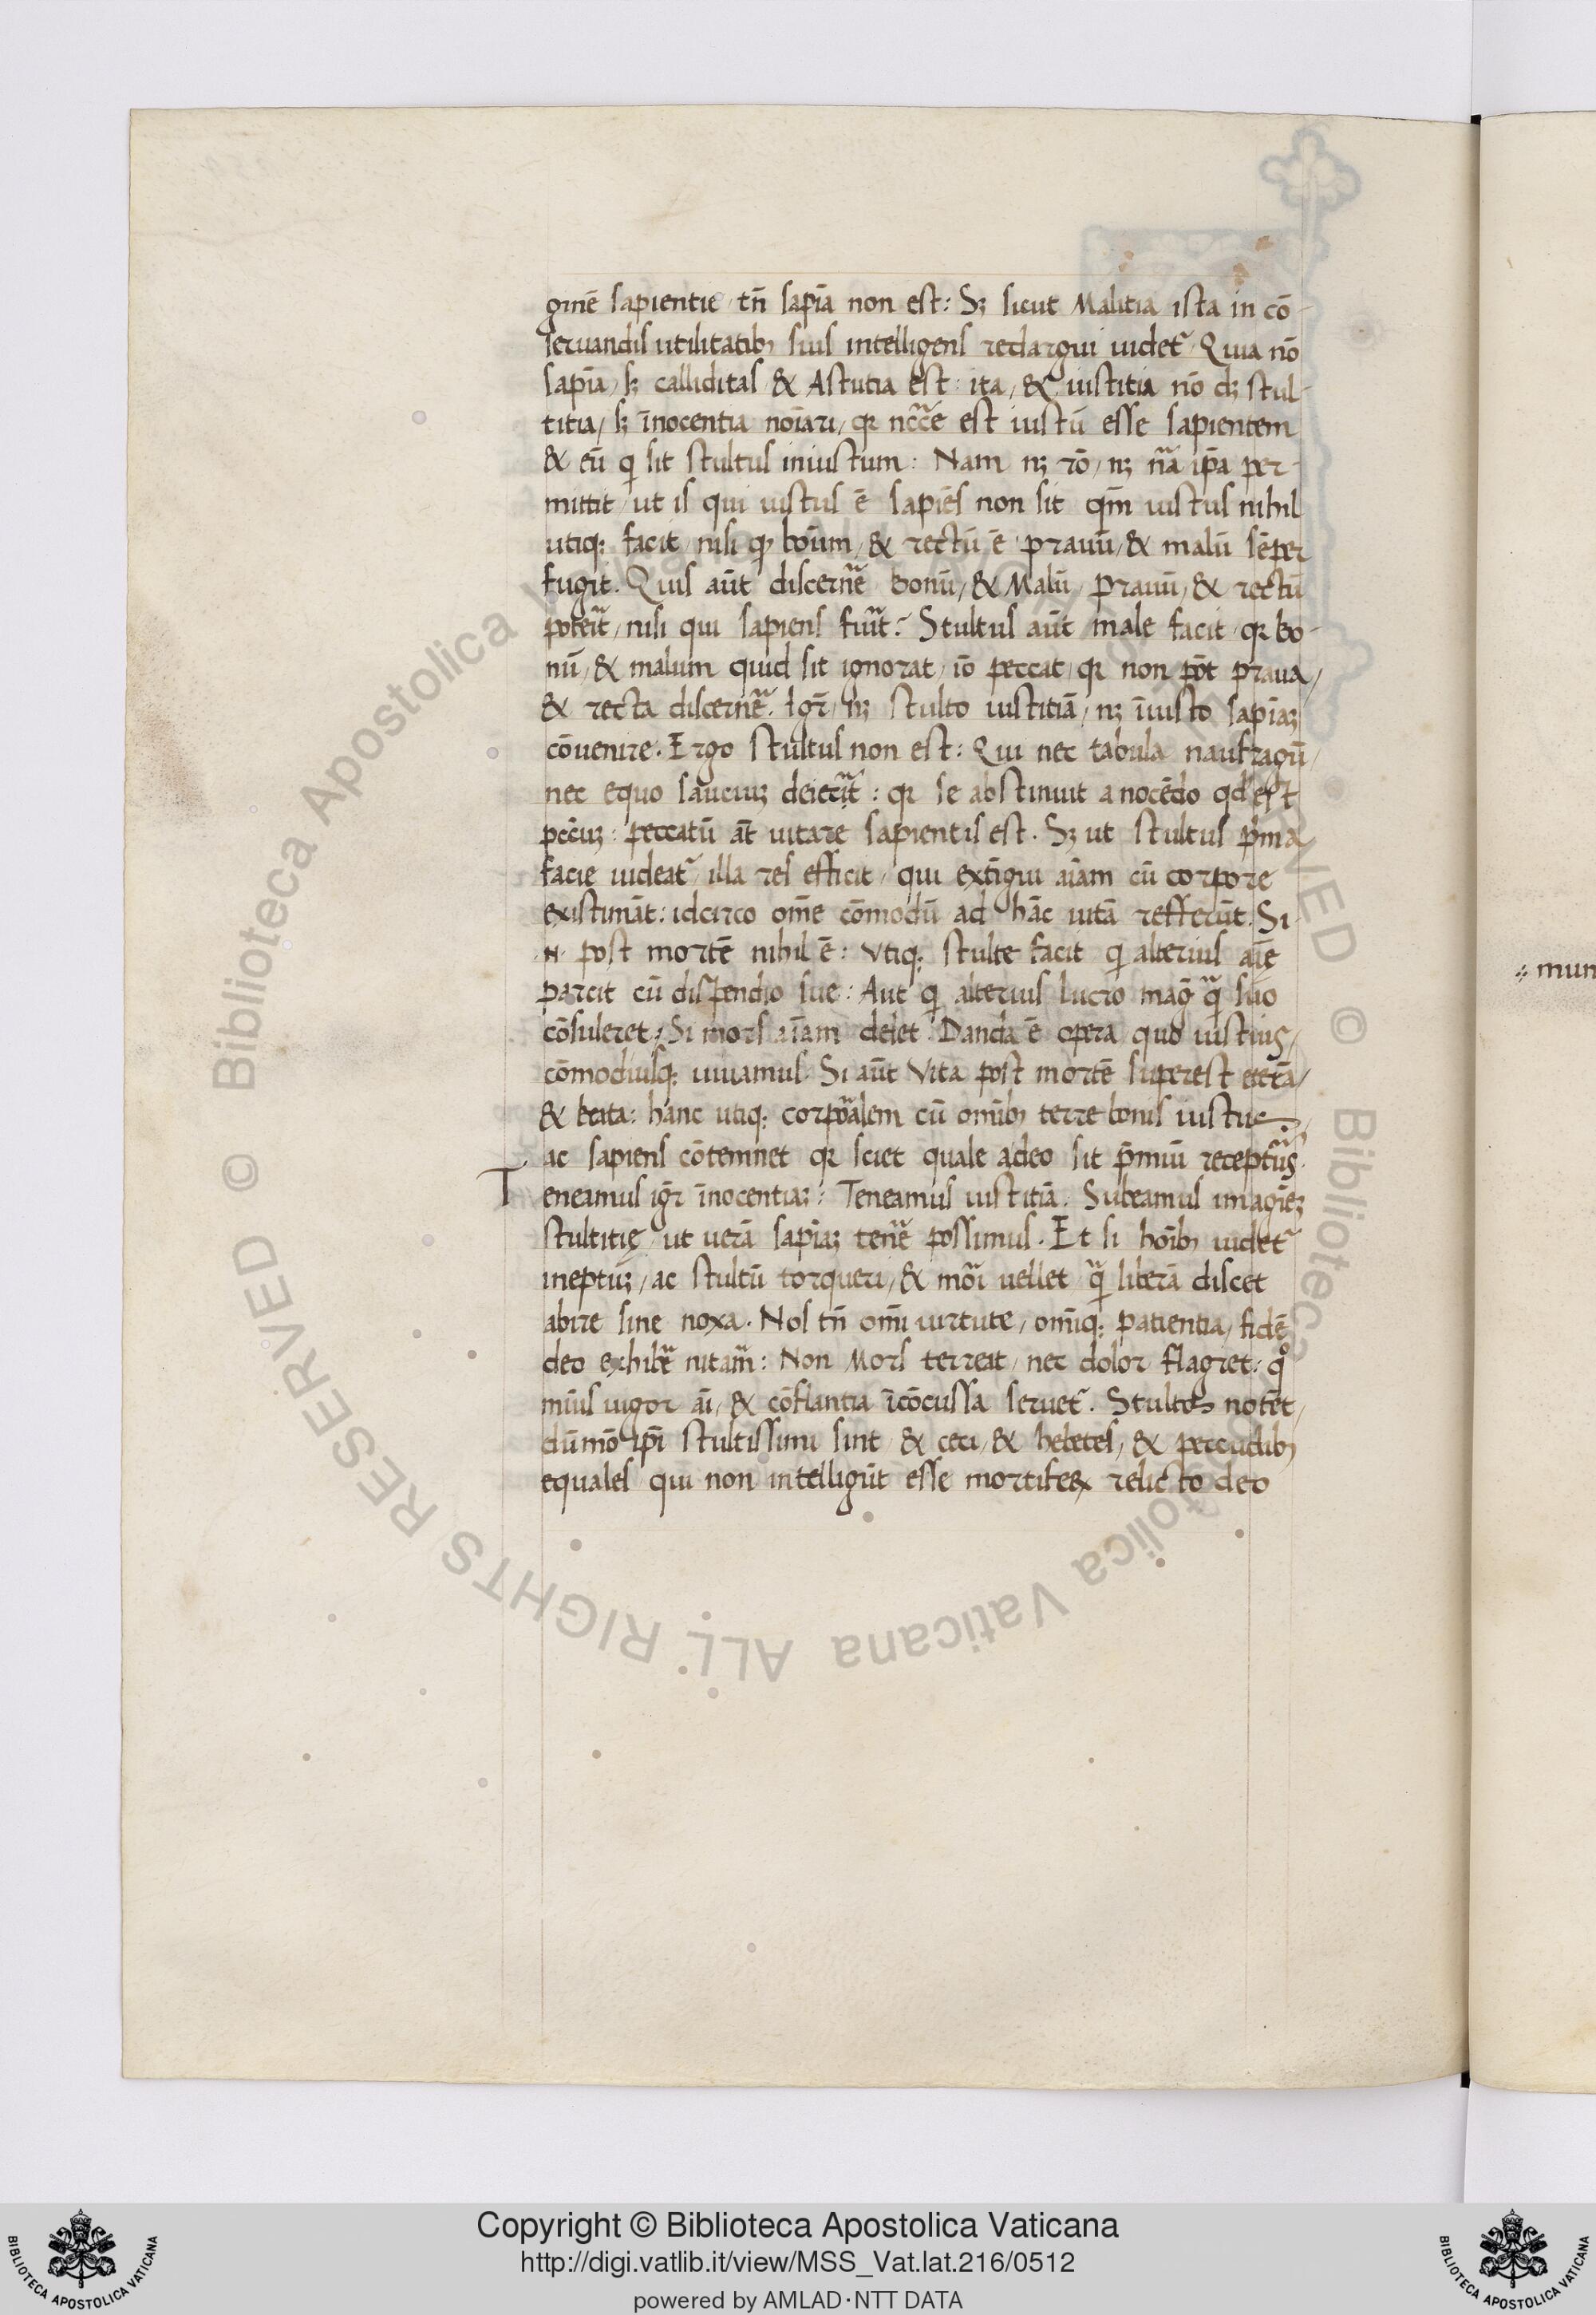 ginē sapientie tn̄ sapīa non est: Sꝫ sicut Malitia ista in cō-
seruandis utilitatibꝫ suis intelligens redargui uidet᷑ Quia nō
sapīa/ sꝫ calliditas & Astutia est: ita/ & iustitia nō dꝫ stul-
titia/ sꝫ īnocentia noīari/ qꝛ nc̄c̄e est iustū esse sapientem
& eū qͥ sit stultus iniustum: Nam nꝫ rō/ nꝫ nāa ip̄a per-
mittit ut is qui iustus ē sapiēs non sit qm̄ iustus nihil
utiqꝫ facit nisi qͩ boūm/ & rectū ē prauū/ & malū sēper
fugit. Quis aūt discern̄e bonū/ & Malū prauū/ & rectū
poteīt/ nisi qui sapiens fuīt? Stultus aūt male facit qꝛ bo-
nū/ & malum quid sit ignorat/ iō peccat/ qꝛ non pōt praua/
& recta discern̄e. Igr̄/ nꝫ stulto iustitiā/ nꝫ īiusto sapīaꝫ
cōuenire. Ergo stultus non est: Qui nec tabula naufragū/
nec equo sauciuꝫ deiec̄it: qꝛ se abstinuit a nocēdo qd̄ est
pcc̄uꝫ: peccatū āt uitare sapientis est. Sꝫ ut stultus pͥma
facie uideat᷑ illa res efficit/ qui extīgui aīam cū corpore
existimāt: idcirco om̄e cōmodū ad hāc uitā refferūt. Si
.N. post mortē nihil ē: Vtiqꝫ stulte facit qͥ alterius aīe
parcit cū dispendio sue: Aut qͥ alterius lucro maḡ qͣ suo
cōsuleret: Si mors aīam delet: Danda ē opera quo iustius/
cōmodiusqꝫ uiuamus. Si aūt Vita post mortē superest et̄tā/
& beata: hanc utiqꝫ corpōalem cū om̄ibꝫ terre bonis iustus
ac sapiens cōtemnet qꝛ sciet quale adeo sit p̄miū recept᷑us.
Teneamus igr̄ īnocentiaꝫ: Teneamus iustitiā. Subeamus imagīeꝫ
stultitię ut uerā sapīaꝫ ten̄e possimus. Et si hoībꝫ uidet᷑
ineptuꝫ/ ac stultū torqueri/ & mōi uellet qͣ liberā discet
abire sine noxa. Nos tn̄ om̄i uirtute/ om̄iqꝫ patientia/ fidē
deo exhib̄e nitam᷑: Non Mors terreat/ nec dolor flagret: qͦ
mīus uigor aī/ & cōstantia īcōcussa seruet᷑. Stultos notēt/
dūmō ip̄i stultissimi sint & ceci/ & hebetes/ & pecudibꝫ
equales qui non intelligūt esse mortiferꝫ relicto deo
⁘ mun
Copyright © Biblioteca Apostolica Vaticana
http://digi.vatlib.it/view/MSS_Vat.lat.216/0512
powered by AMLAD·NTT DATA
BIBLIOTECA APOSTOLICA VATICANA
BIBLIOTECA APOSTOLICA VATICANA
© Biblioteca Apostolica Vaticana ALL RIGHTS RESERVED